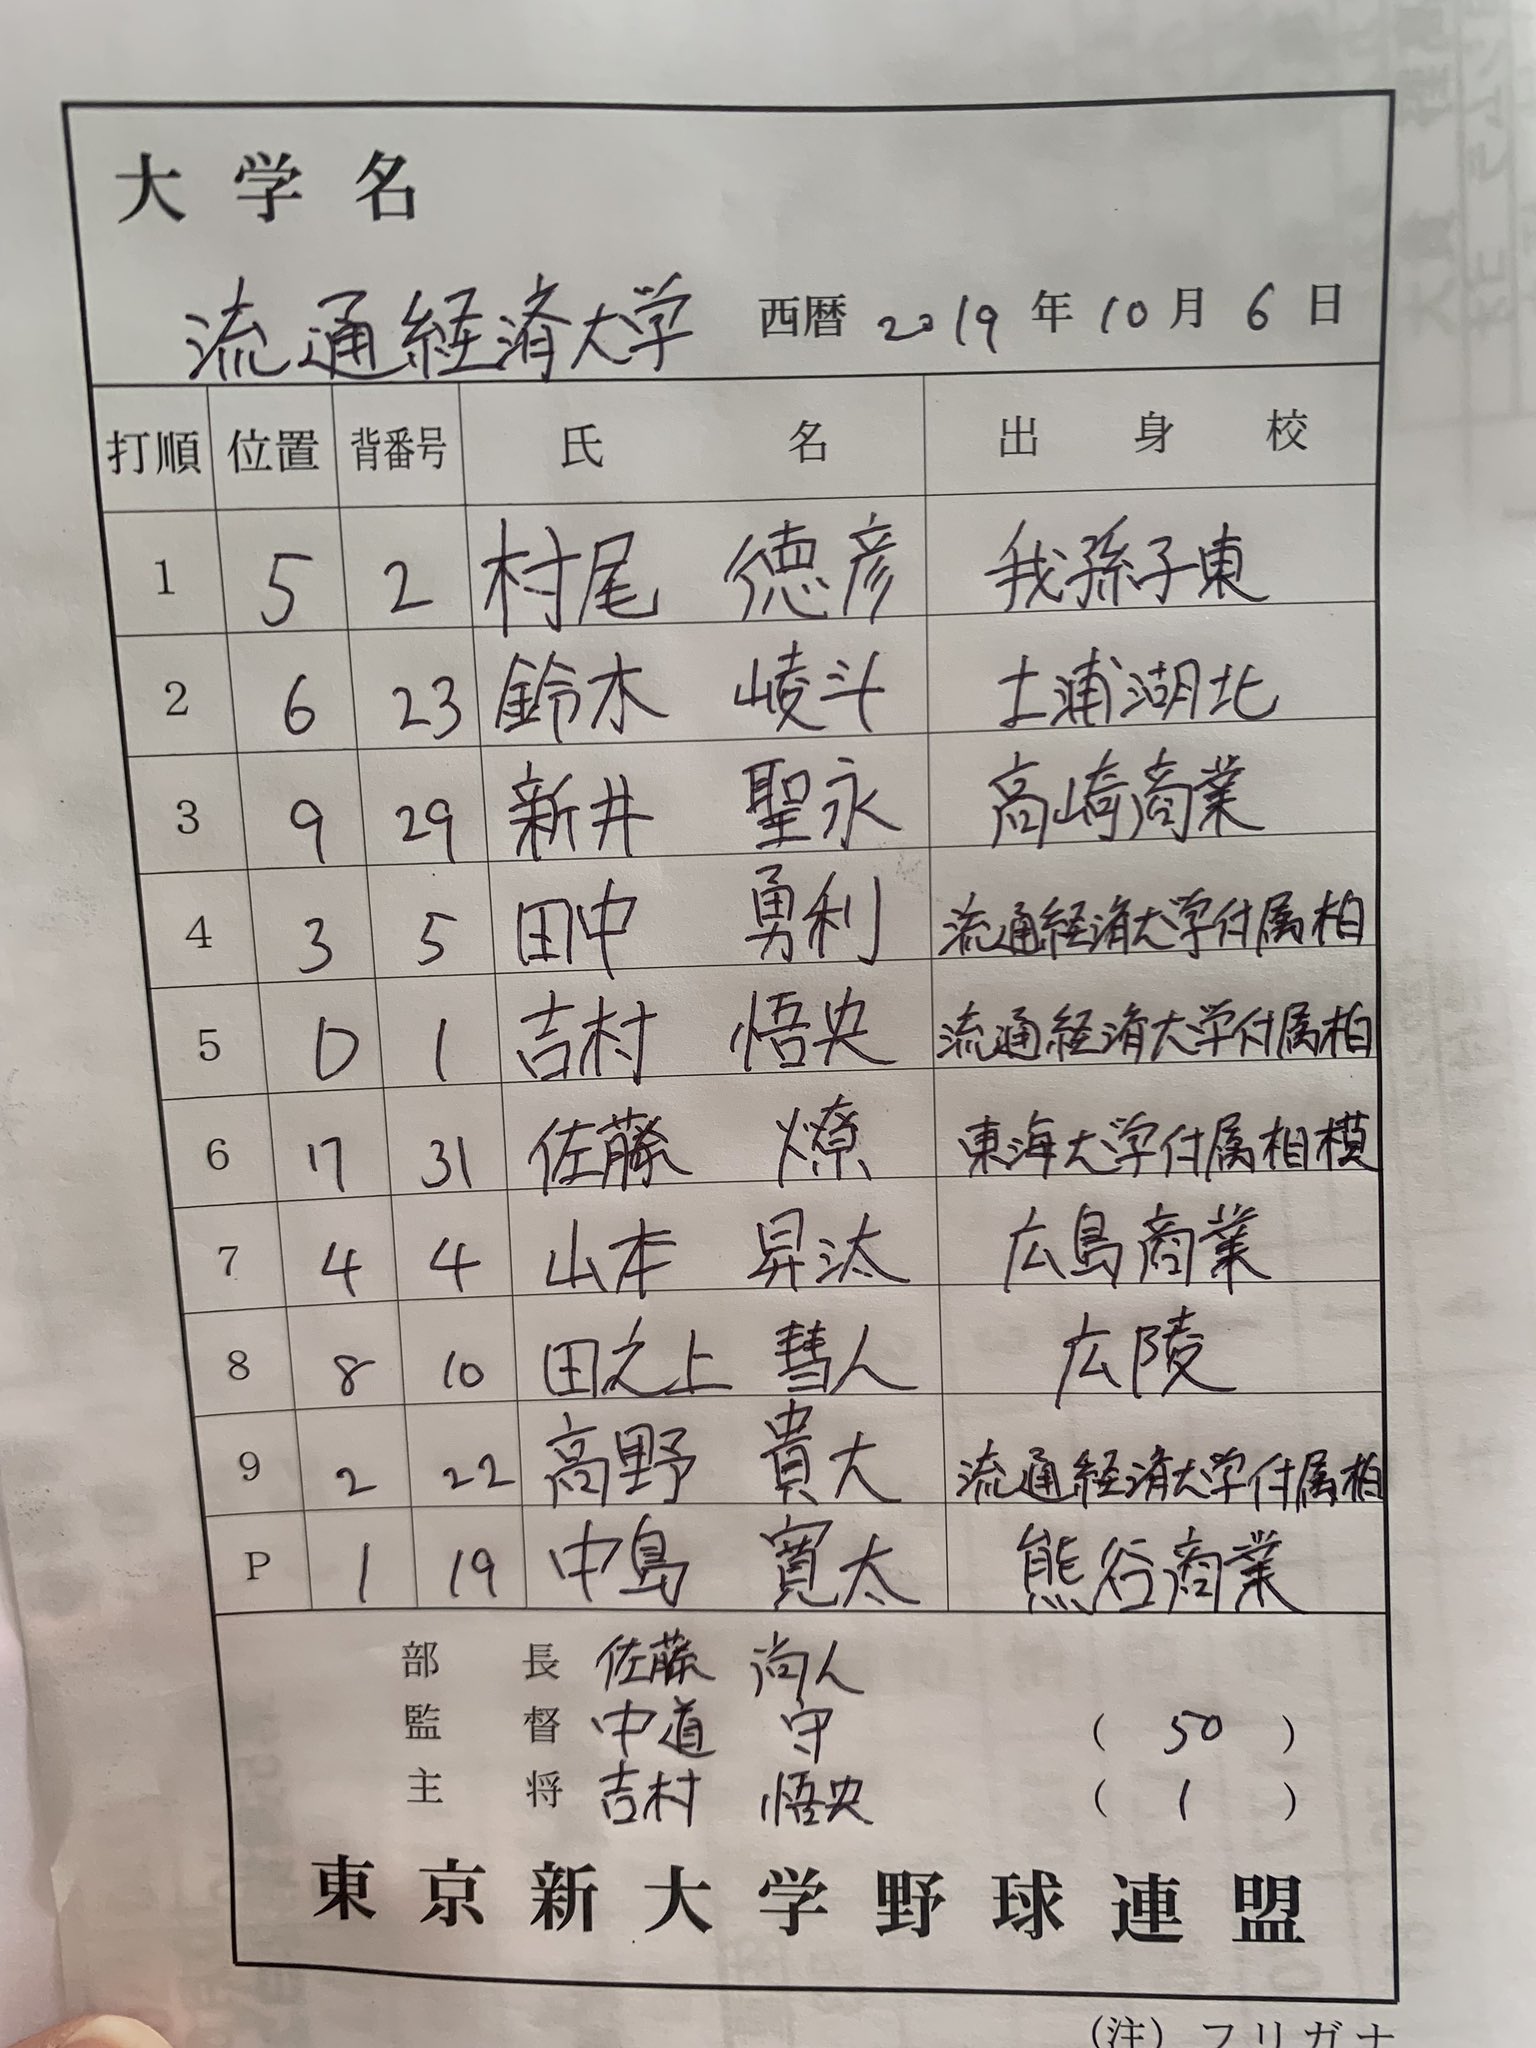 大学名
流通経済大学 西暦 2019 年 10 月 6 日
打順 位置 背番号 氏名 出身校
1 5 2 村尾 徳彦 我孫子東
2 6 23 鈴木 崚斗 土浦湖北
3 9 29 新井 聖永 高崎商業
4 3 5 田中 勇利 流通経済大学付属柏
5 D 1 吉村 悟央 流通経済大学付属柏
6 17 31 佐藤 燎 東海大学付属相模
7 4 4 山本 昇汰 広島商業
8 8 10 田之上 彗人 広陵
9 2 22 高野 貴大 流通経済大学付属柏
P 1 19 中島 寛太 熊谷商業
部長 佐藤 尚人
監督 中道 守 ( 50 )
主将 吉村 悟央 ( 1 )
東京新大学野球連盟
(注) フリガナ